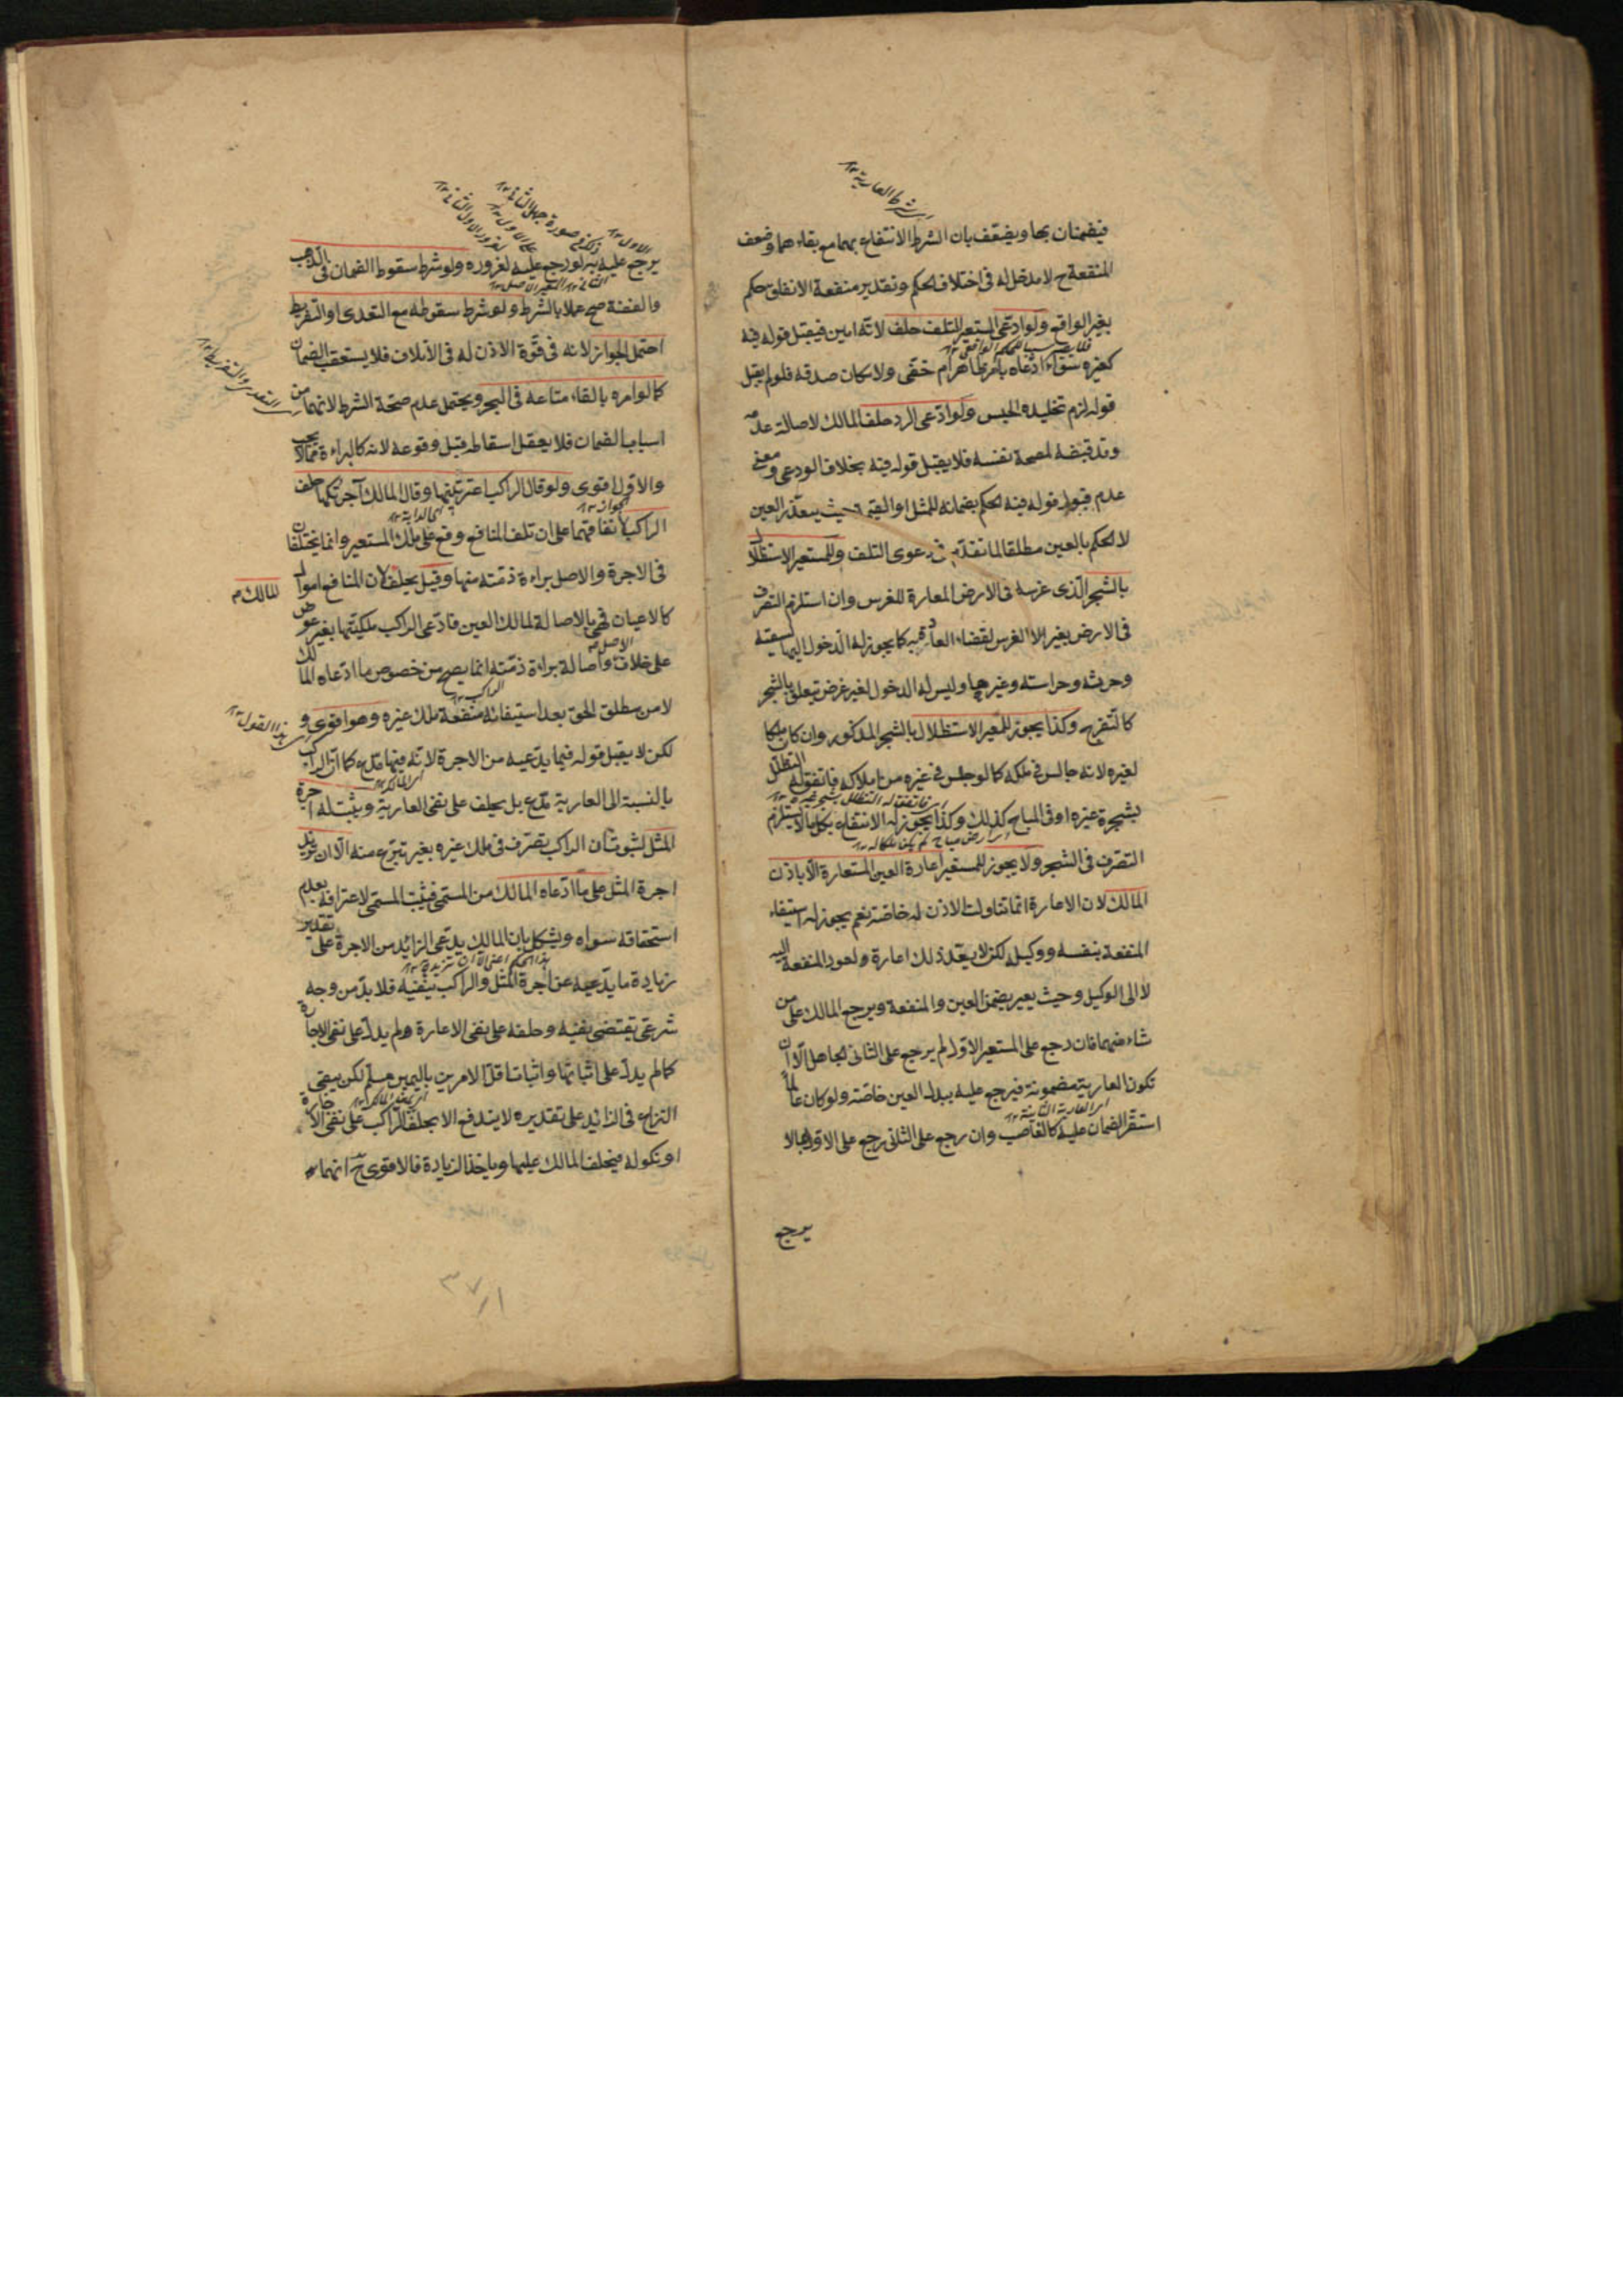 فيضمنان بها ويضعف بان الشرط الانتفاع بهما مع بقائهما وضعف
المنفعة ح لا مدخل له فى اختلاف الحكم وتقدير منفعة الانفاق حكم
بغير الواقع ولو ادعى المستعير التلف حلف لانه امين فيقبل قوله فيه
كغيره سواء ادعاه بامر ظاهر ام خفى ولامكان صدقه فلو لم يقبل
قوله لزم تخليده الحبس ولو ادعى الرد حلف المالك لاصالة عدمه
وقد قبضه لمصلحة نفسه فلا يقبل قوله فيه بخلاف الودعى ومعنى
عدم قبول قوله فيه الحكم بضمانه للمثل او القيمة حيث يتعذر العين
لا الحكم بالعين مطلقا لما تقدم فى دعوى التلف وللمستعير الاستظلال
بالشجر الذى غرسه فى الارض المعارة للغرس وان استلزم التصرف
فى الارض بغير الغرس لقضاء العادة به كما يجوز له الدخول اليها لسقيه
وحرثه وحراسته وغيرها وليس له الدخول لغير غرض يتعلق بالشجر
كالتفرج وكذا يجوز للمعير الاستظلال بالشجر المذكور وان كان ملكا
لغيره لانه جالس فى ملكه كما لو جلس فى غيره من املاكه فاتفق له التظلل
بشجرة غيره او فى المباح كذلك وكذا يجوز له الانتفاع بكل ما لا يستلزم
التصرف فى الشجر ولا يجوز للمستعير اعارة العين المستعارة الا باذن
المالك لان الاعارة انما تناولت الاذن له خاصة نعم يجوز له استيفاء
المنفعة بنفسه ووكيله لكن لا يعد ذلك اعارة ولعود المنفعة اليه
لا الى الوكيل وحيث يعير يضمن العين والمنفعة ويرجع المالك على من
شاء منهما فان رجع على المستعير الاول لم يرجع على الثانى الجاهل الا ان
تكون العارية مضمونة فيرجع عليه ببدل العين خاصة ولو كان عالما
استقر الضمان عليه كالغاصب وان رجع على الثانى رجع على الاول بما لا
يرجع
يرجع عليه به لو رجع عليه لغروره ولو شرط سقوط الضمان فى الذهب
والفضة صح عملا بالشرط ولو شرط سقوطه مع التعدى او التفريط
احتمل الجواز لانه فى قوة الاذن له فى الاتلاف فلا يستعقب الضمان
كما لو امره بالقاء متاعه فى البحر ويحتمل عدم صحة الشرط لانهما من
اسباب الضمان فلا يعقل اسقاطه قبل وقوعه لانه كالبراءة مما لا يجب
والاول اقوى ولو قال الراكب اعرتنيها وقال المالك آجرتكها حلف
الراكب لاتفاقهما على ان تلف المنافع وقع على ملك المستعير وانما يختلفان
فى الاجرة والاصل براءة ذمته منها وقيل يحلف المالك لان المنافع اموال
كالاعيان فهى بالاصالة لمالك العين فادعى الراكب ملكيتها بغير عوض
على خلاف الاصل واصالة براءة ذمته انما يصح من خصوص ما ادعاه المالك
لا من مطلق الحق بعد استيفائه منفعة ملك غيره وهو اقوى و
لكن لا يقبل قوله فيما يدعيه من الاجرة لانه فيها مدع كما ان الراكب
بالنسبة الى العارية مدع بل يحلف على نفى العارية ويثبت له اجرة
المثل لثبوت ان الراكب تصرف فى ملك غيره بغير تبرع منه الا ان تزيد
اجرة المثل على ما ادعاه المالك من المسمى فيثبت المسمى لاعترافه بعدم
استحقاقه سواه ويشكل بان المالك يدعى الزائد من الاجرة على تقدير
زيادة ما يدعيه عن اجرة المثل والراكب ينفيه فلا بد من وجه
شرعى يقتضى نفيه وحلفه على نفى الاعارة لم يدل على نفى الاجارة
كما لم يدل على اثباتها واثبات اقل الامرين باليمين مسلم لكن يبقى
النزاع فى الزائد على تقديره لا يندفع الا بحلف الراكب على نفى الاجارة
او نكوله فيحلف المالك عليها وياخذ الزيادة فالاقوى ح انهما